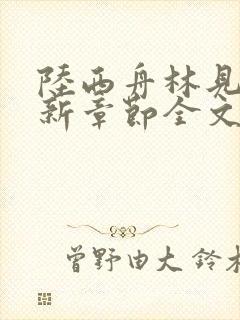 陸西舟林見
新章節全文
曾野由大 鈴木